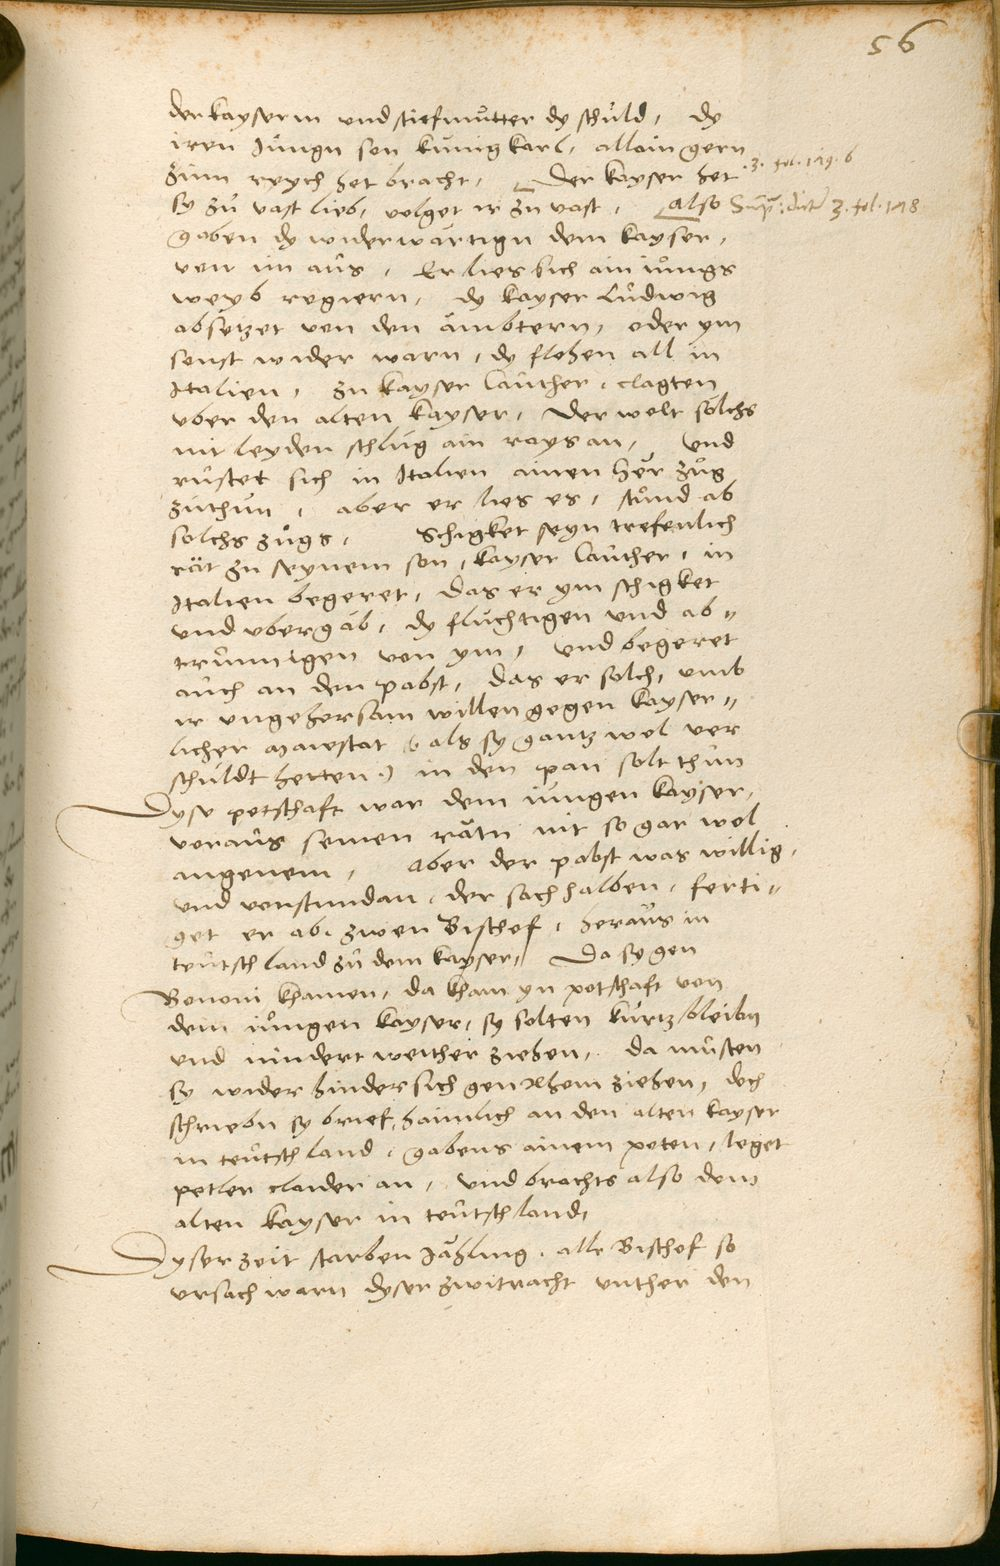 56
der kayserin und stiefmuͦtter dy schuld, dy
iren Jungn son kuͦnig karl, allain gern
zum reych het bracht, Der kayser het . 3. fol. 119. b
sy zuͦ vast lieb, volget ir zu vast, also 3. fol. 118
gaben dy widerwaͤrtign dem kayser,
von im aus, Er lies sich ain iungs
weyb regiern, dy kayser Ludwig
absetzet von den aͤmbtern, oder ym
sonst wider warn, dy flohen all in
Italien, zu kayser Lauther, clagten
vber den alten kayser, Der wolt solchs
nit leyden schlug ain rays an, und
rustet sich in Italien ainen her zug
zuthun, aber er lies es, stuͦnd ab
solchs zugs, Schigket seyn trefenlich
raͤt zu seynem son, kayser Lauther, in
Italien begeret, das er ym schigket
und vbergaͤb, dy fluchtigen und ab=
truͤnnigen von ym, und begeret
auch an den pabst, das er solch, umb
ir ungehorsam willen gegen kayser=
licher maiestat (als sy gantz wol ver
schuldt hetten) in den pan solt thun
Dyse potschaft war dem iungen kayser,
voraus seinen raͤtn nit so gar wol
angenem, Aber der pabst was willig,
und verstundan, der sach halben, ferti=
get er ab, zwen Bischof, heraus in
teutschland zu dem kayser, Da sy gen
Bononi khamen, da kham yn potschaft von
dem iungen kayser, sy solten kurtz bleibn
und nindert weither ziehen, da musten
sy wider hindersich gen Rhom ziehen, doch
schriebn sy brief, haimlich an den alten kayser
in teutschland, gabens ainem poten, leget
petler claider an, und brachts also dem
alten kayser in teutschland,
Dyser zeit starben Jaͤhling, alle Bischof so
ursach warn dyser zwitracht unther den